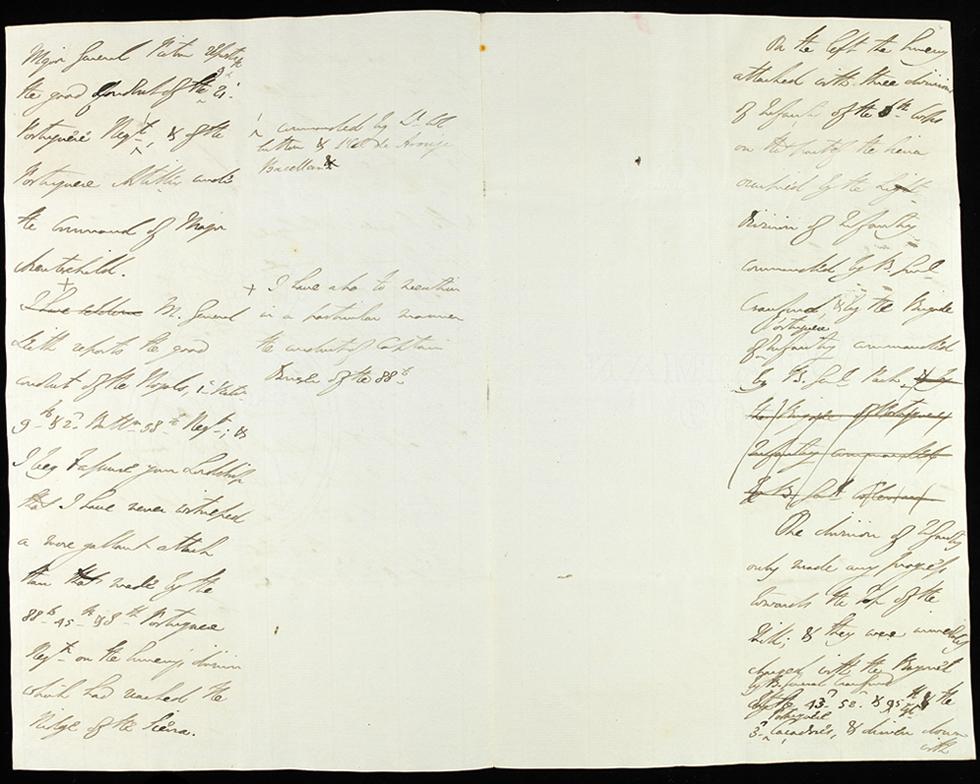 Major General Picton reports
the good conduct of the 9th & 21st
Portuguese Regt, & of the
Portuguese Artillery under
the Command of Major
Arentschild.
+
I have seldom M. General
Leith reports the good
conduct of the Royals, 1st Batn
9th & 2d Battn 38th Regt; &
I beg to assure your Lordship
that I have never witnessed
a more gallant attack
than that made by the
88th 45th & 8th Portuguese
Regt on the Enemy's division
which had reached the
Ridge of the Sierra.
commanded by Lt Col
Sutton & Lt Col de Araujo
Bacellar &
+ I have also to mention
in a particular manner
the conduct of Captain
of the 88th
On the left the Enemy
attacked with three divisions
of Infantry of the 6th Corps
on the part of the Sierra
occupied by the Light
Division of Infantry
commanded by B. Genl
Craufurd & by the Brigade
Portuguese
of Infantry commanded
by B. Genl Pack, & by
the Brigade of Portuguese
Infantry commanded
by B. Genl Coleman
One division of Infantry
only made any progress
towards the Top of the
Hill; & they were immediately
charged with the Bayonet
by B. General Craufurd
by the 43d 52d & 95th & the
Portuguese
3d Cacadores, & driven down
with